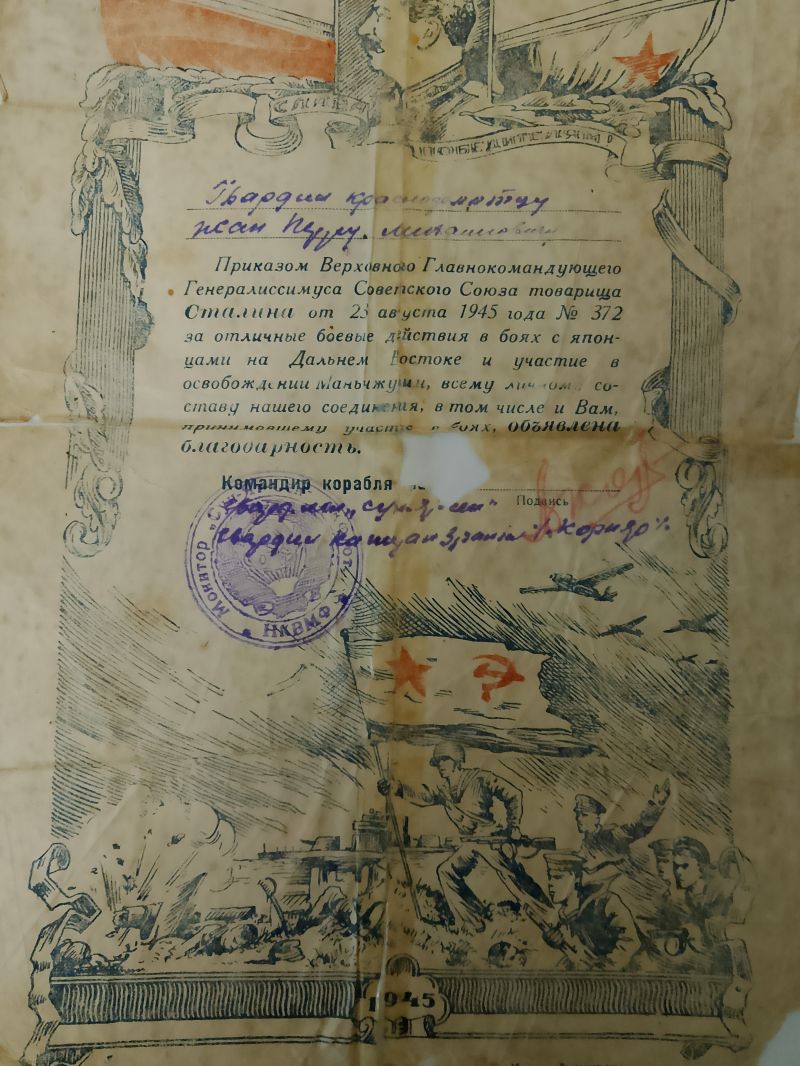 Гвардии краснофлотцу
Приказом Верховного Главнокомандующего
Генералиссимуса Советского Союза товарища
Сталина от 23 августа 1945 года № 372
за отличные боевые действия в боях с япон-
цами на Дальнем Востоке и участие в
освобождении Маньчжурии, всему личному со-
ставу нашего соединения, в том числе и Вам,
принимавшему участие в боях, объявлена
благодарность.
Командир корабля
Подпись
Гвардии
Гвардии капитан
Монитор
НКВМФ
1945